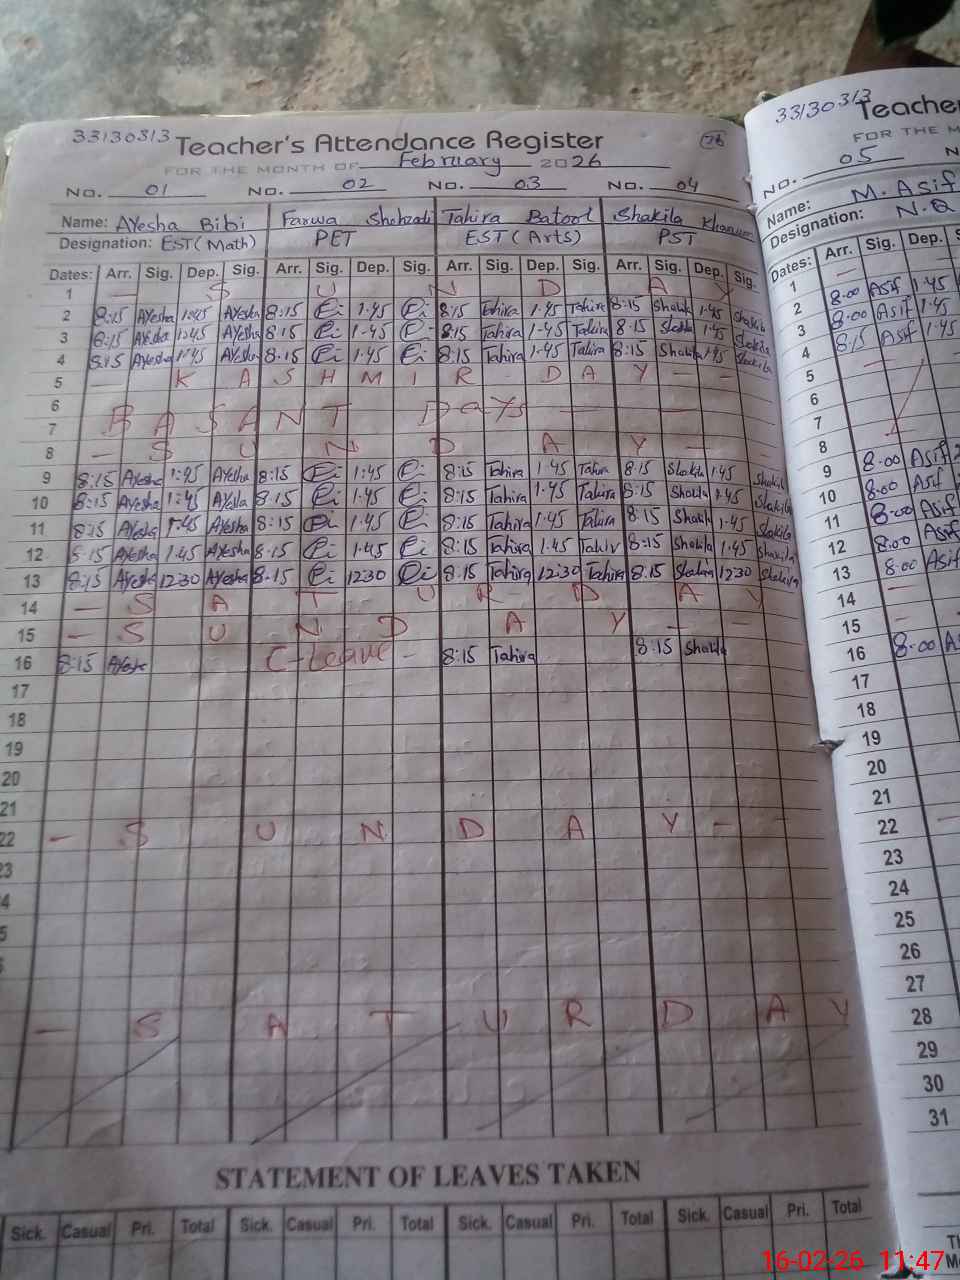 33130313 Teacher's Attendance Register 76
FOR THE MONTH OF February 2026
No. 01 No. 02 No. 03 No. 04
Name: Ayesha Bibi Farwa Shehzadi Tahira Batool Shakila Khanum
Designation: EST (Math) PET EST (Arts) PST
Dates: Arr. Sig. Dep. Sig. Arr. Sig. Dep. Sig. Arr. Sig. Dep. Sig. Arr. Sig. Dep. Sig.
1 — S U N D A Y
2 8:15 Ayesha 1:45 Ayesha 8:15 1.45 8:15 Tahira 1.45 Tahira 8:15 Shakila 1.45 Shakila
3 8:15 Ayesha 1:45 Ayesha 8.15 1-45 8:15 Tahira 1-45 Tahira 8.15 Shakila 1.45 Shakila
4 8:15 Ayesha 1.45 Ayesha 8.15 1.45 8:15 Tahira 1.45 Tahira 8:15 Shakila 1.45 Shakila
5 — K A S H M I R - D A Y - -
6
7 B A S A N T Days — —
8 — S U N D A Y -
9 8:15 Ayesha 1:45 Ayesha 8:15 1:45 8:15 Tahira 1.45 Tahira 8.15 Shakila 1.45 Shakila
10 8:15 Ayesha 1:45 Ayesha 8.15 1.45 8:15 Tahira 1.45 Tahira 8:15 Shakila 1.45 Shakila
11 8:15 Ayesha 1.45 Ayesha 8:15 1.45 8:15 Tahira 1.45 Tahira 8:15 Shakila 1.45 Shakila
12 8:15 Ayesha 1.45 Ayesha 8.15 1.45 8:15 Tahira 1.45 Tahira 8:15 Shakila 1.45 Shakila
13 8:15 Ayesha 12:30 Ayesha 8.15 12:30 8:15 Tahira 12:30 Tahira 8:15 Shakila 12:30 Shakila
14 — S A T U R D A Y
15 — S U N D A Y — —
16 8:15 Ayesha C-Leave - 8:15 Tahira 8:15 Shakila
17
18
19
20
21
22 — S U N D A Y -
23
4
5
— S A T U R D A Y
STATEMENT OF LEAVES TAKEN
Sick. Casual Pri. Total Sick. Casual Pri. Total Sick. Casual Pri. Total Sick. Casual Pri. Total
33130313 Teacher
FOR THE M
No. 05 N
Name: M. Asif
Designation: N.Q
Dates: Arr. Sig. Dep. S
1 —
2 8.00 Asif 1.45
3 8:00 Asif 1.45
4 8:15 Asif 1.45
5 —
6
7
8
9 8.00 Asif
10 8.00 Asif
11 8.00 Asif
12 8:00 Asif
13 8:00 Asif
14 —
15 —
16 8.00
17
18
19
20
21
22 —
23
24
25
26
27
28
29
30
31
16-02-26 11:47